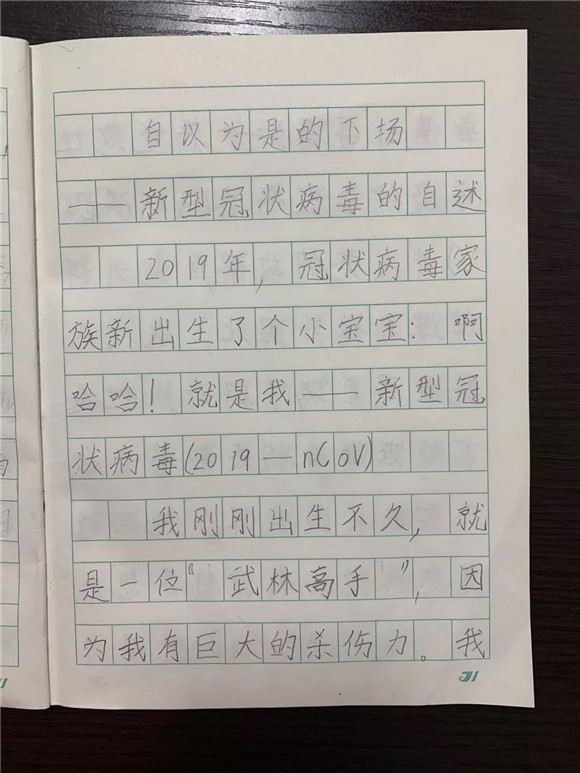 自以为是的下场
——新型冠状病毒的自述
2019年,冠状病毒家
族新出生了个小宝宝:啊
哈哈!就是我——新型冠
状病毒(2019—nCoV)
我刚刚出生不久,就
是一位“武林高手”,因
为我有巨大的杀伤力。我